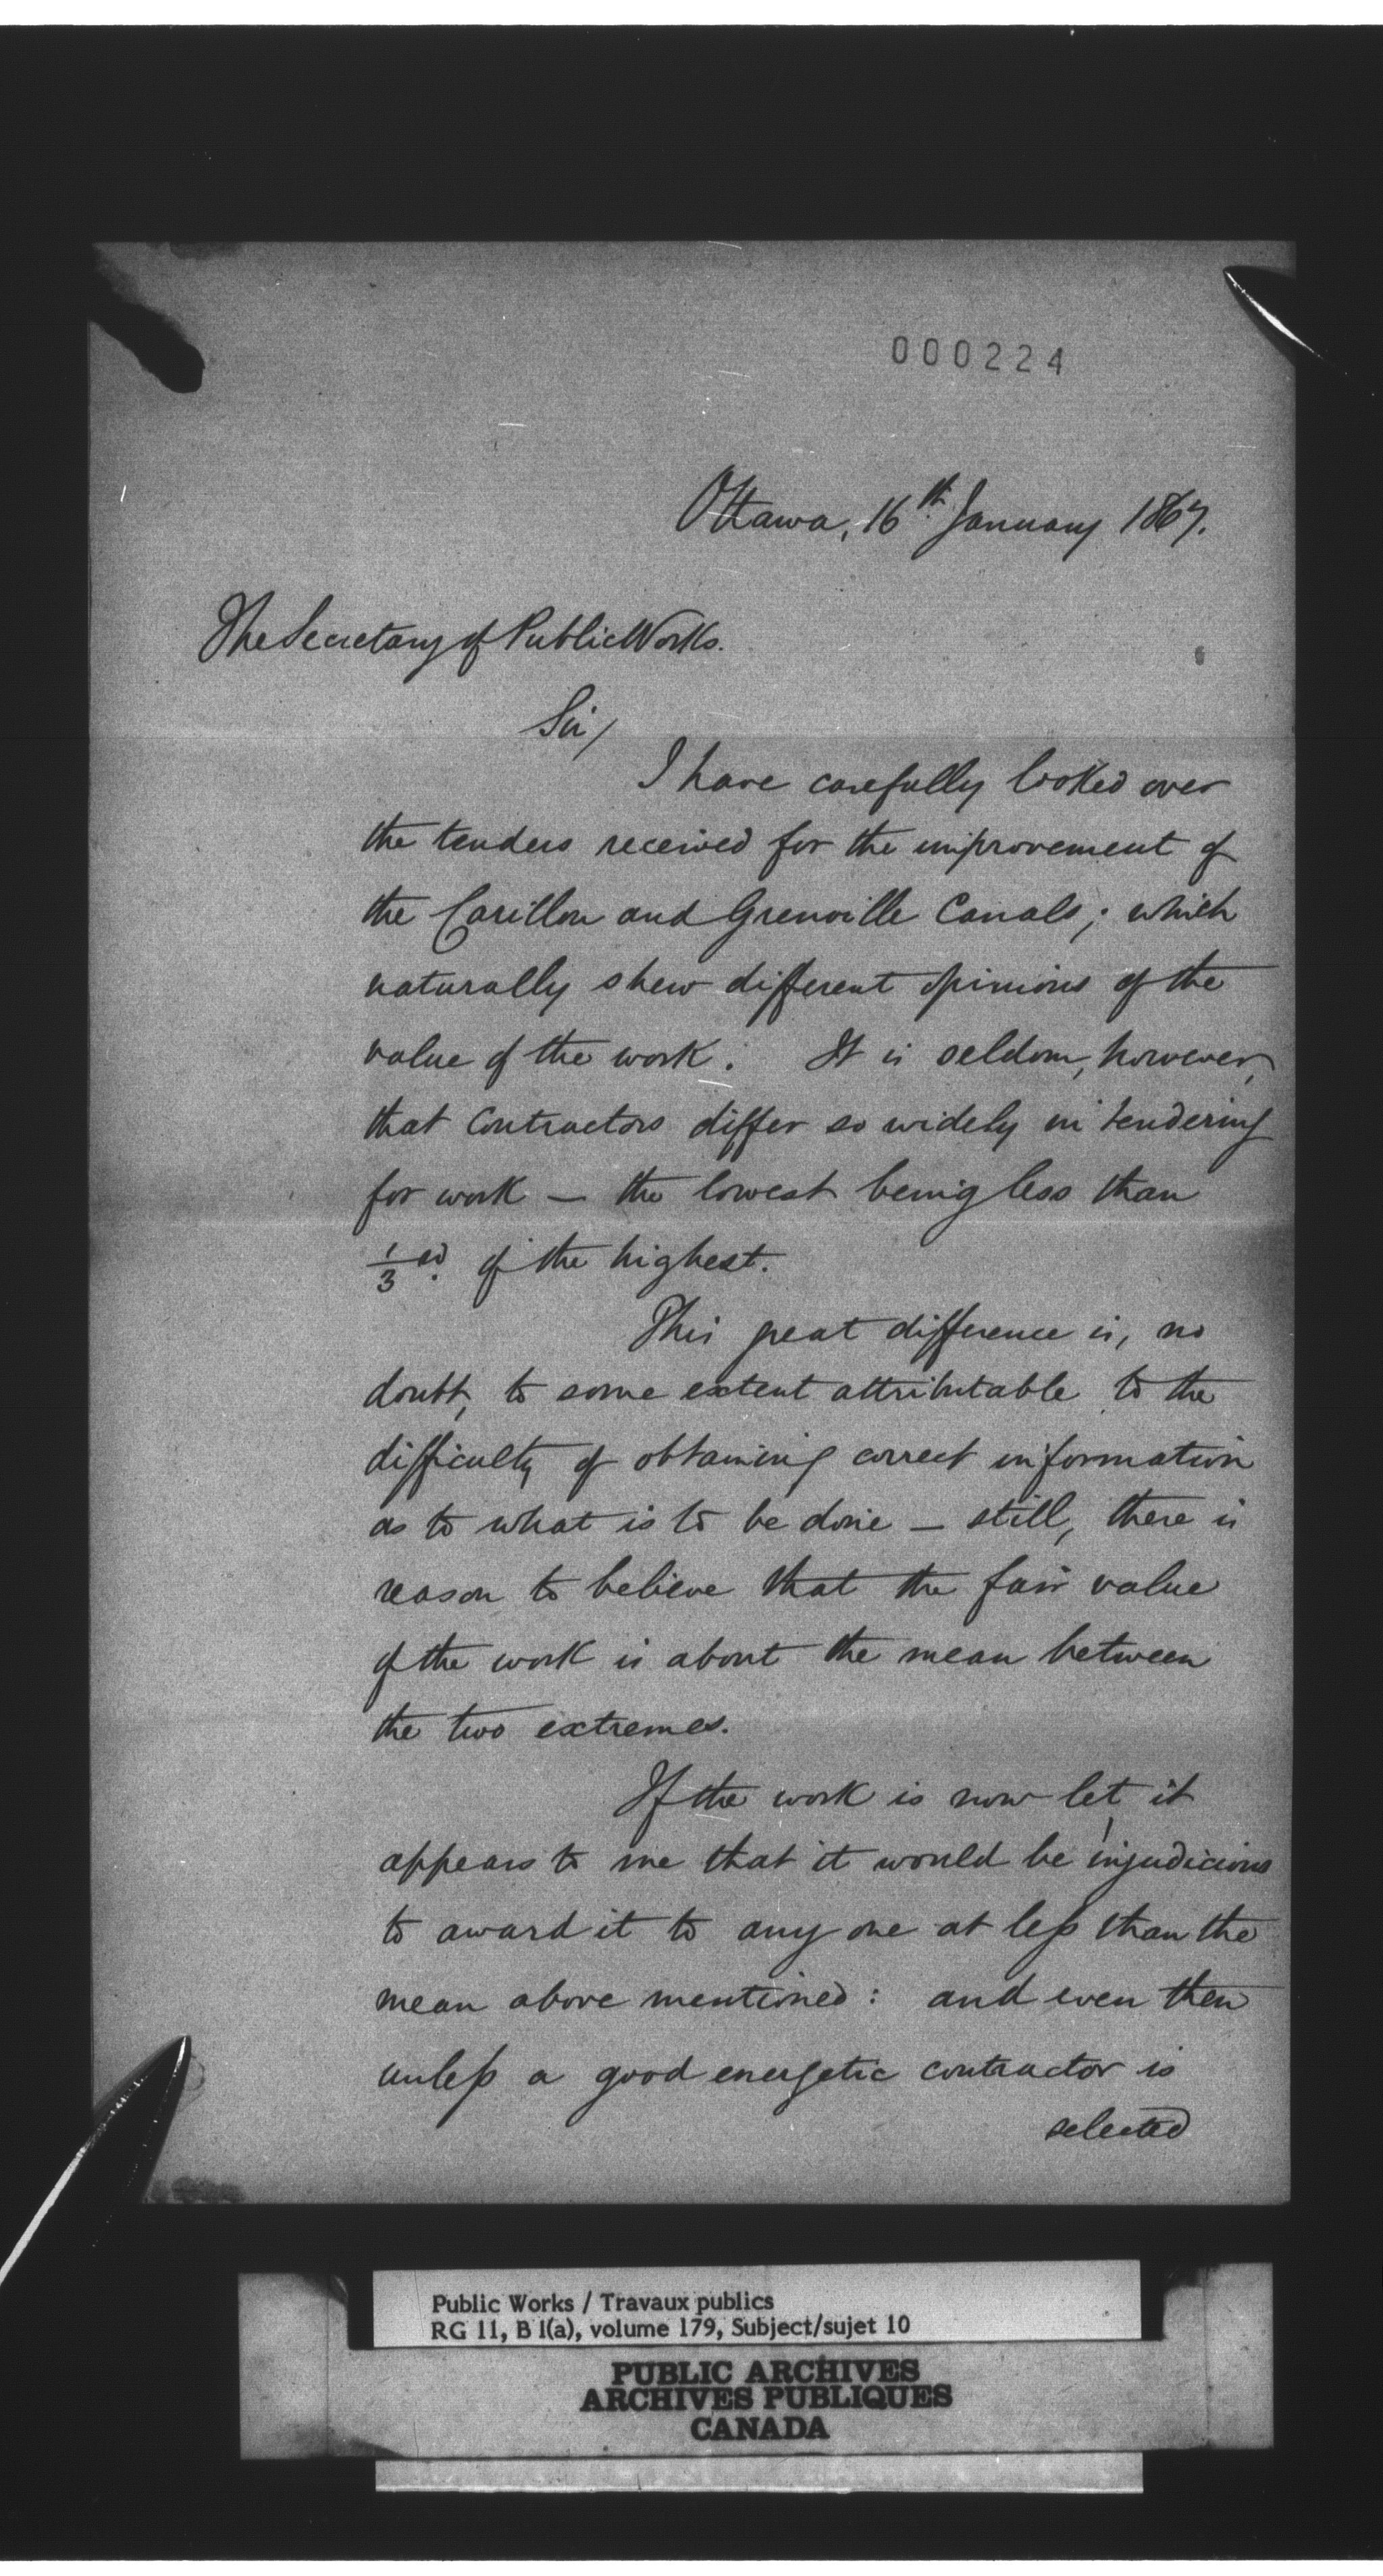 000224
Ottawa, 16th. January 1867.
The Secretary of Public Works.
Sir,
I have carefully looked over
the tenders received for the improvement of
the Carillon and Grenville Canals; which
naturally shew different opinions of the
value of the work. It is seldom, however,
that Contractors differ so widely in tendering
for work — the lowest being less than
1/3rd. of the highest.
This great difference is, no
doubt, to some extent attributable to the
difficulty of obtaining correct information
as to what is to be done — still, there is
reason to believe that the fair value
of the work is about the mean between
the two extremes.
If the work is now let, it
appears to me that it would be injudicious
to award it to any one at less than the
mean above mentioned: and even then
unless a good energetic contractor is
selected
Public Works / Travaux publics
RG 11, B 1(a), volume 179, Subject/sujet 10
PUBLIC ARCHIVES
ARCHIVES PUBLIQUES
CANADA